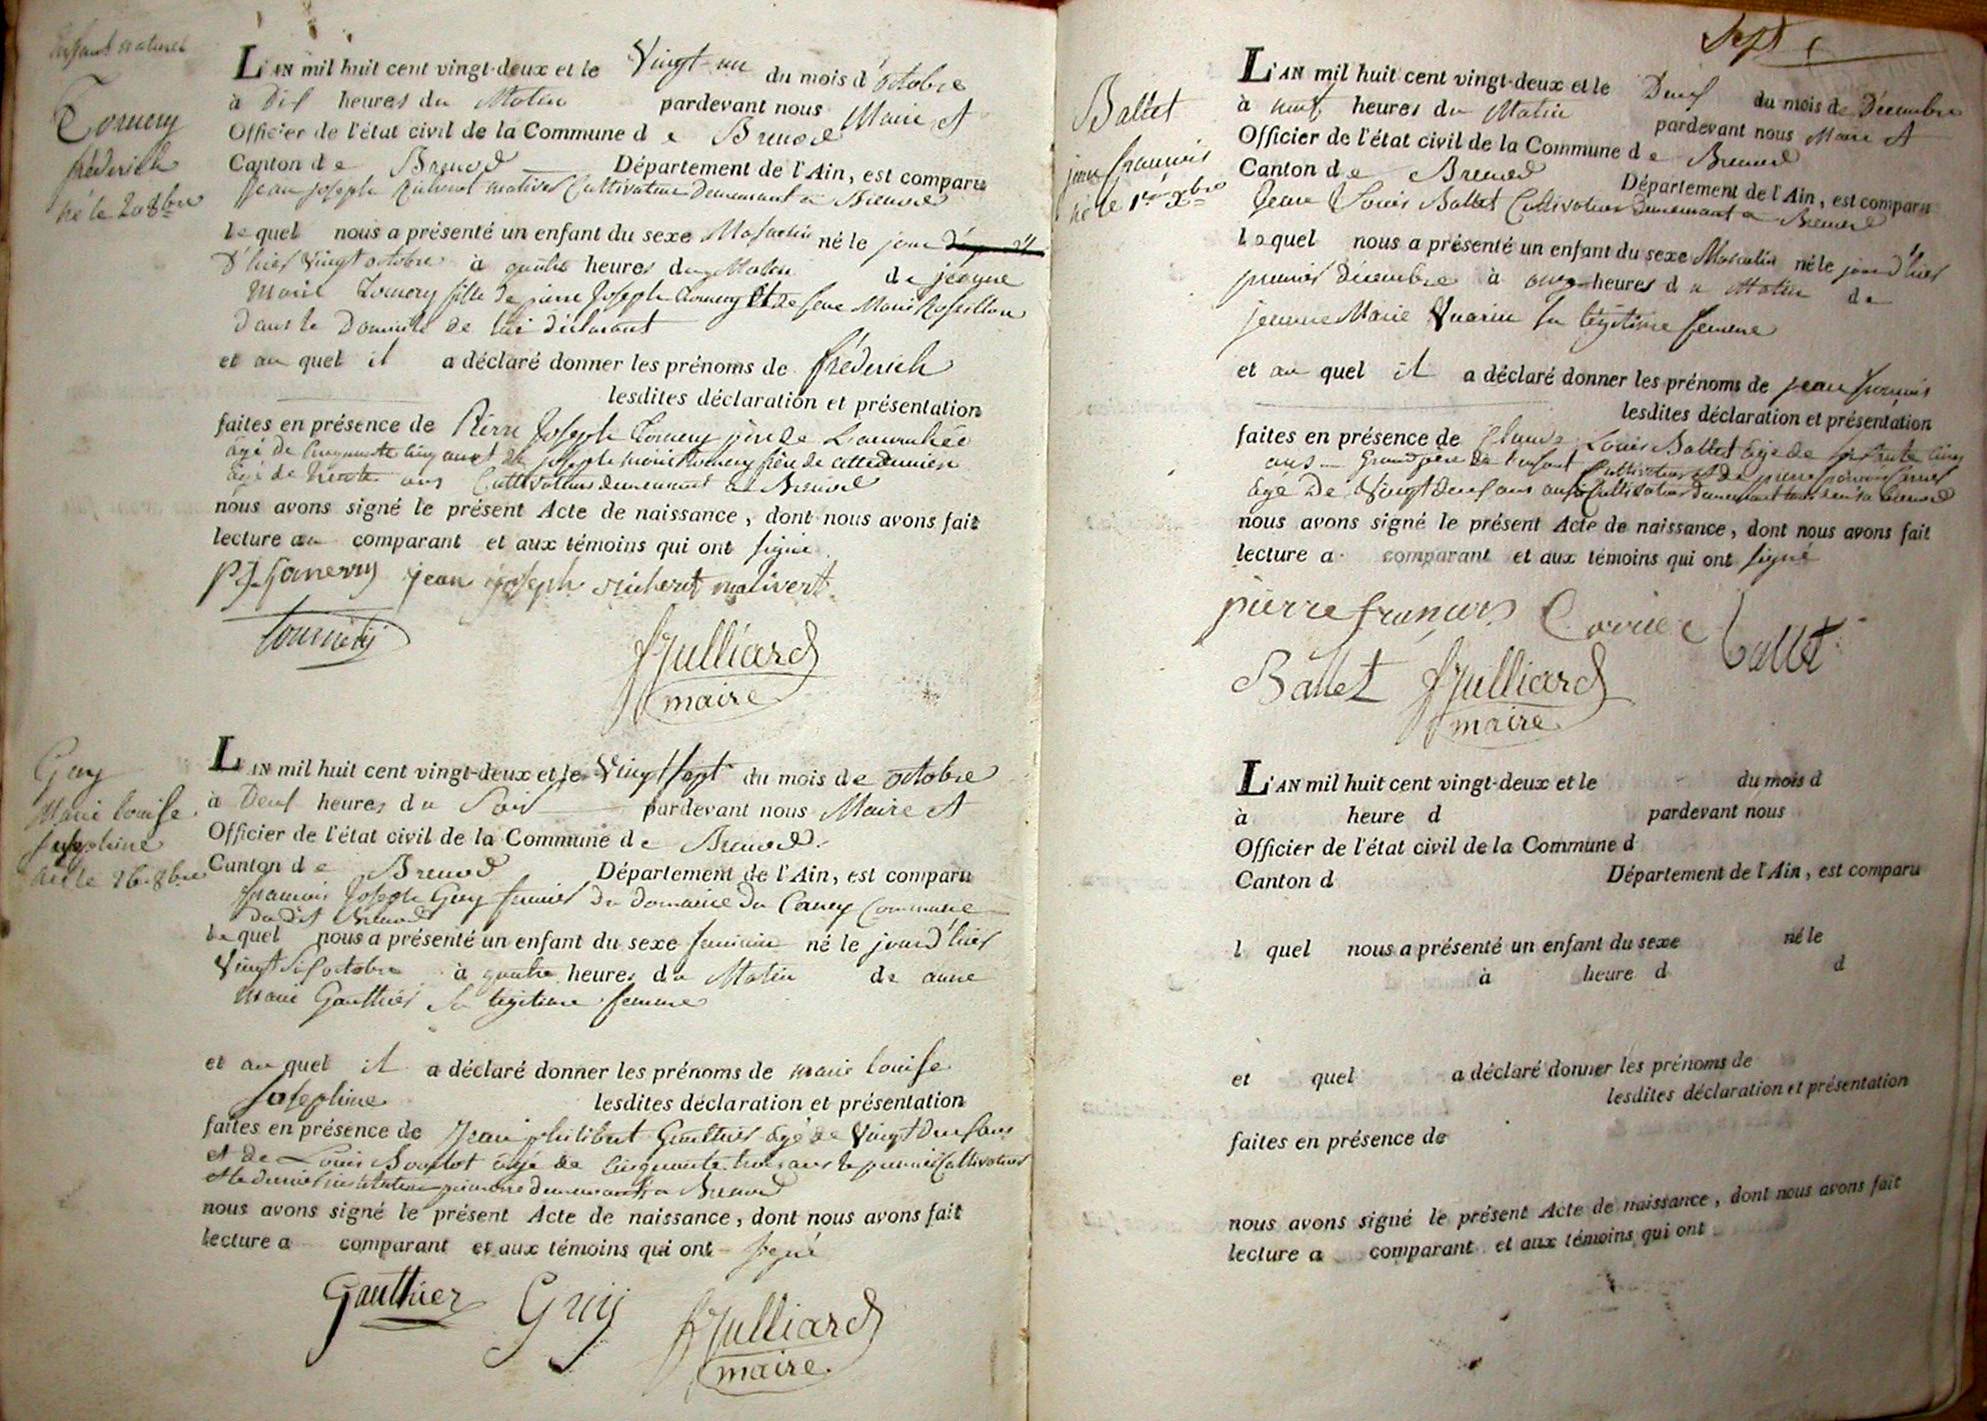 enfant naturel
Tornery
fréderich
né le 20 8bre
L'AN mil huit cent vingt-deux et le Vingt-un du mois d'octobre
à Dix heures du Matin pardevant nous Maire et
Officier de l'état civil de la Commune de Brenod
Canton de Brenod Département de l'Ain, est comparu
Jean joseph Cultivateur Demeurant a Brenod
lequel nous a présenté un enfant du sexe Masculin né le jour
D'hier Vingt octobre à quatre heures du Matin de jeanne
Marie Tornery fille de pierre Joseph Tornery et de feue Marie
Dans le Domicile de lui déclarant
et au quel il a déclaré donner les prénoms de fréderich
lesdites déclaration et présentation
faites en présence de Pierre Joseph Tornery père de L'accouchée
âgé de Cinquante cinq ans et de joseph marie Tornery frère de cette derniere
âgé de trente ans Cultivateurs demeurant a Brenod
nous avons signé le présent Acte de naissance, dont nous avons fait
lecture au comparant et aux témoins qui ont signé
P J Tornery jean joseph richerot malivert
Tournery
Julliard
maire
Guy
Marie Louise
Josephine
née le 26 8bre
L'AN mil huit cent vingt-deux et le Vingt sept du mois de octobre
à Deux heures du Soir pardevant nous Maire et
Officier de l'état civil de la Commune de Brenod
Canton de Brenod Département de l'Ain, est comparu
francois Joseph Guy fermier du domaine du Commune
du dit Brenod
lequel nous a présenté un enfant du sexe feminin né le jour d'hier
Vingt six octobre à quatre heures du Matin de anne
marie Gauthier sa légitime femme
et au quel il a déclaré donner les prénoms de marie louise
Josephine lesdites déclaration et présentation
faites en présence de Jean philibert Gauthier âgé de Vingt deux ans
et de Louis âgé de Cinquante trois ans le premier Cultivateur
et le dernier instituteur primaire demeurants a Brenod
nous avons signé le présent Acte de naissance, dont nous avons fait
lecture a comparant et aux témoins qui ont signé
Gauthier Guy Julliard
maire
Sept
Ballet
jean francois
né le 1er Xbre
L'AN mil huit cent vingt-deux et le Deux du mois de Décembre
à neuf heures du Matin pardevant nous Maire et
Officier de l'état civil de la Commune de Brenod
Canton de Brenod Département de l'Ain, est comparu
Jean Louis Ballet Cultivateur Demeurant a Brenod
lequel nous a présenté un enfant du sexe Masculin né le jour d'hier
premier Décembre à onze heures du Matin de
jeanne Marie Vuarin sa légitime femme
et au quel il a déclaré donner les prénoms de jean francois
lesdites déclaration et présentation
faites en présence de Claude Louis Ballet âgé de soixante cinq
ans Grand père de l'enfant Cultivateur et de pierre francois Carrier
âgé De Vingt deux ans aussi Cultivateur demeurant tous deux a Brenod
nous avons signé le présent Acte de naissance, dont nous avons fait
lecture a comparant et aux témoins qui ont signé
pierre françois Carrier Ballet
Ballet Julliard
maire
L'AN mil huit cent vingt-deux et le du mois d
à heure d pardevant nous
Officier de l'état civil de la Commune d
Canton d Département de l'Ain, est comparu
l quel nous a présenté un enfant du sexe né le
à heure d d
et quel a déclaré donner les prénoms de
lesdites déclaration et présentation
faites en présence de
nous avons signé le présent Acte de naissance, dont nous avons fait
lecture a comparant et aux témoins qui ont